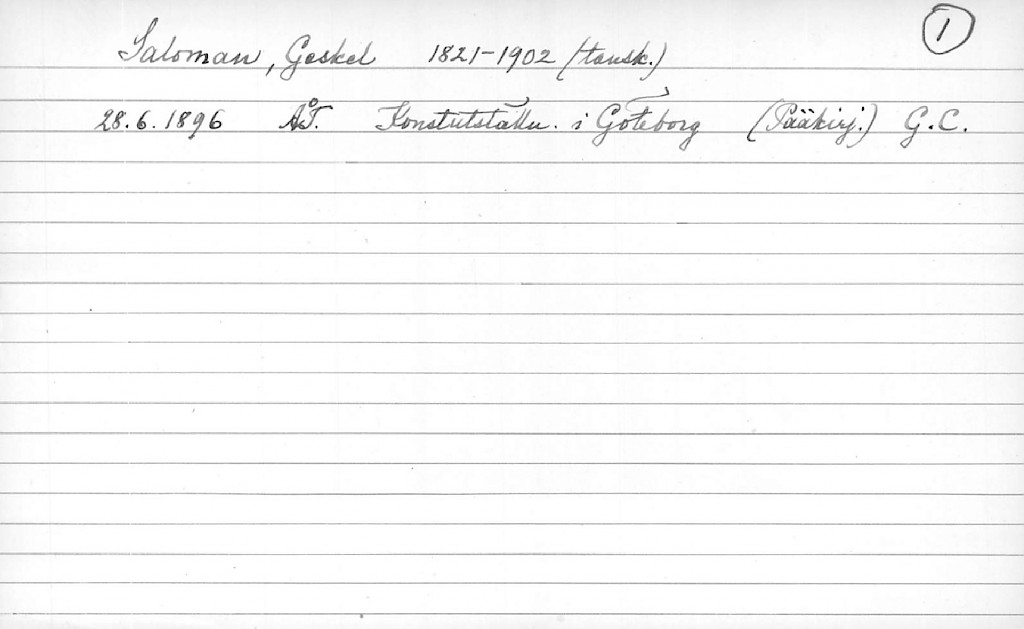 1
Saloman, Geskel 1821-1902 (tansk.)
28.6.1896 ÅT. Konstutställn. i Göteborg (Pääkirj.) G.C.